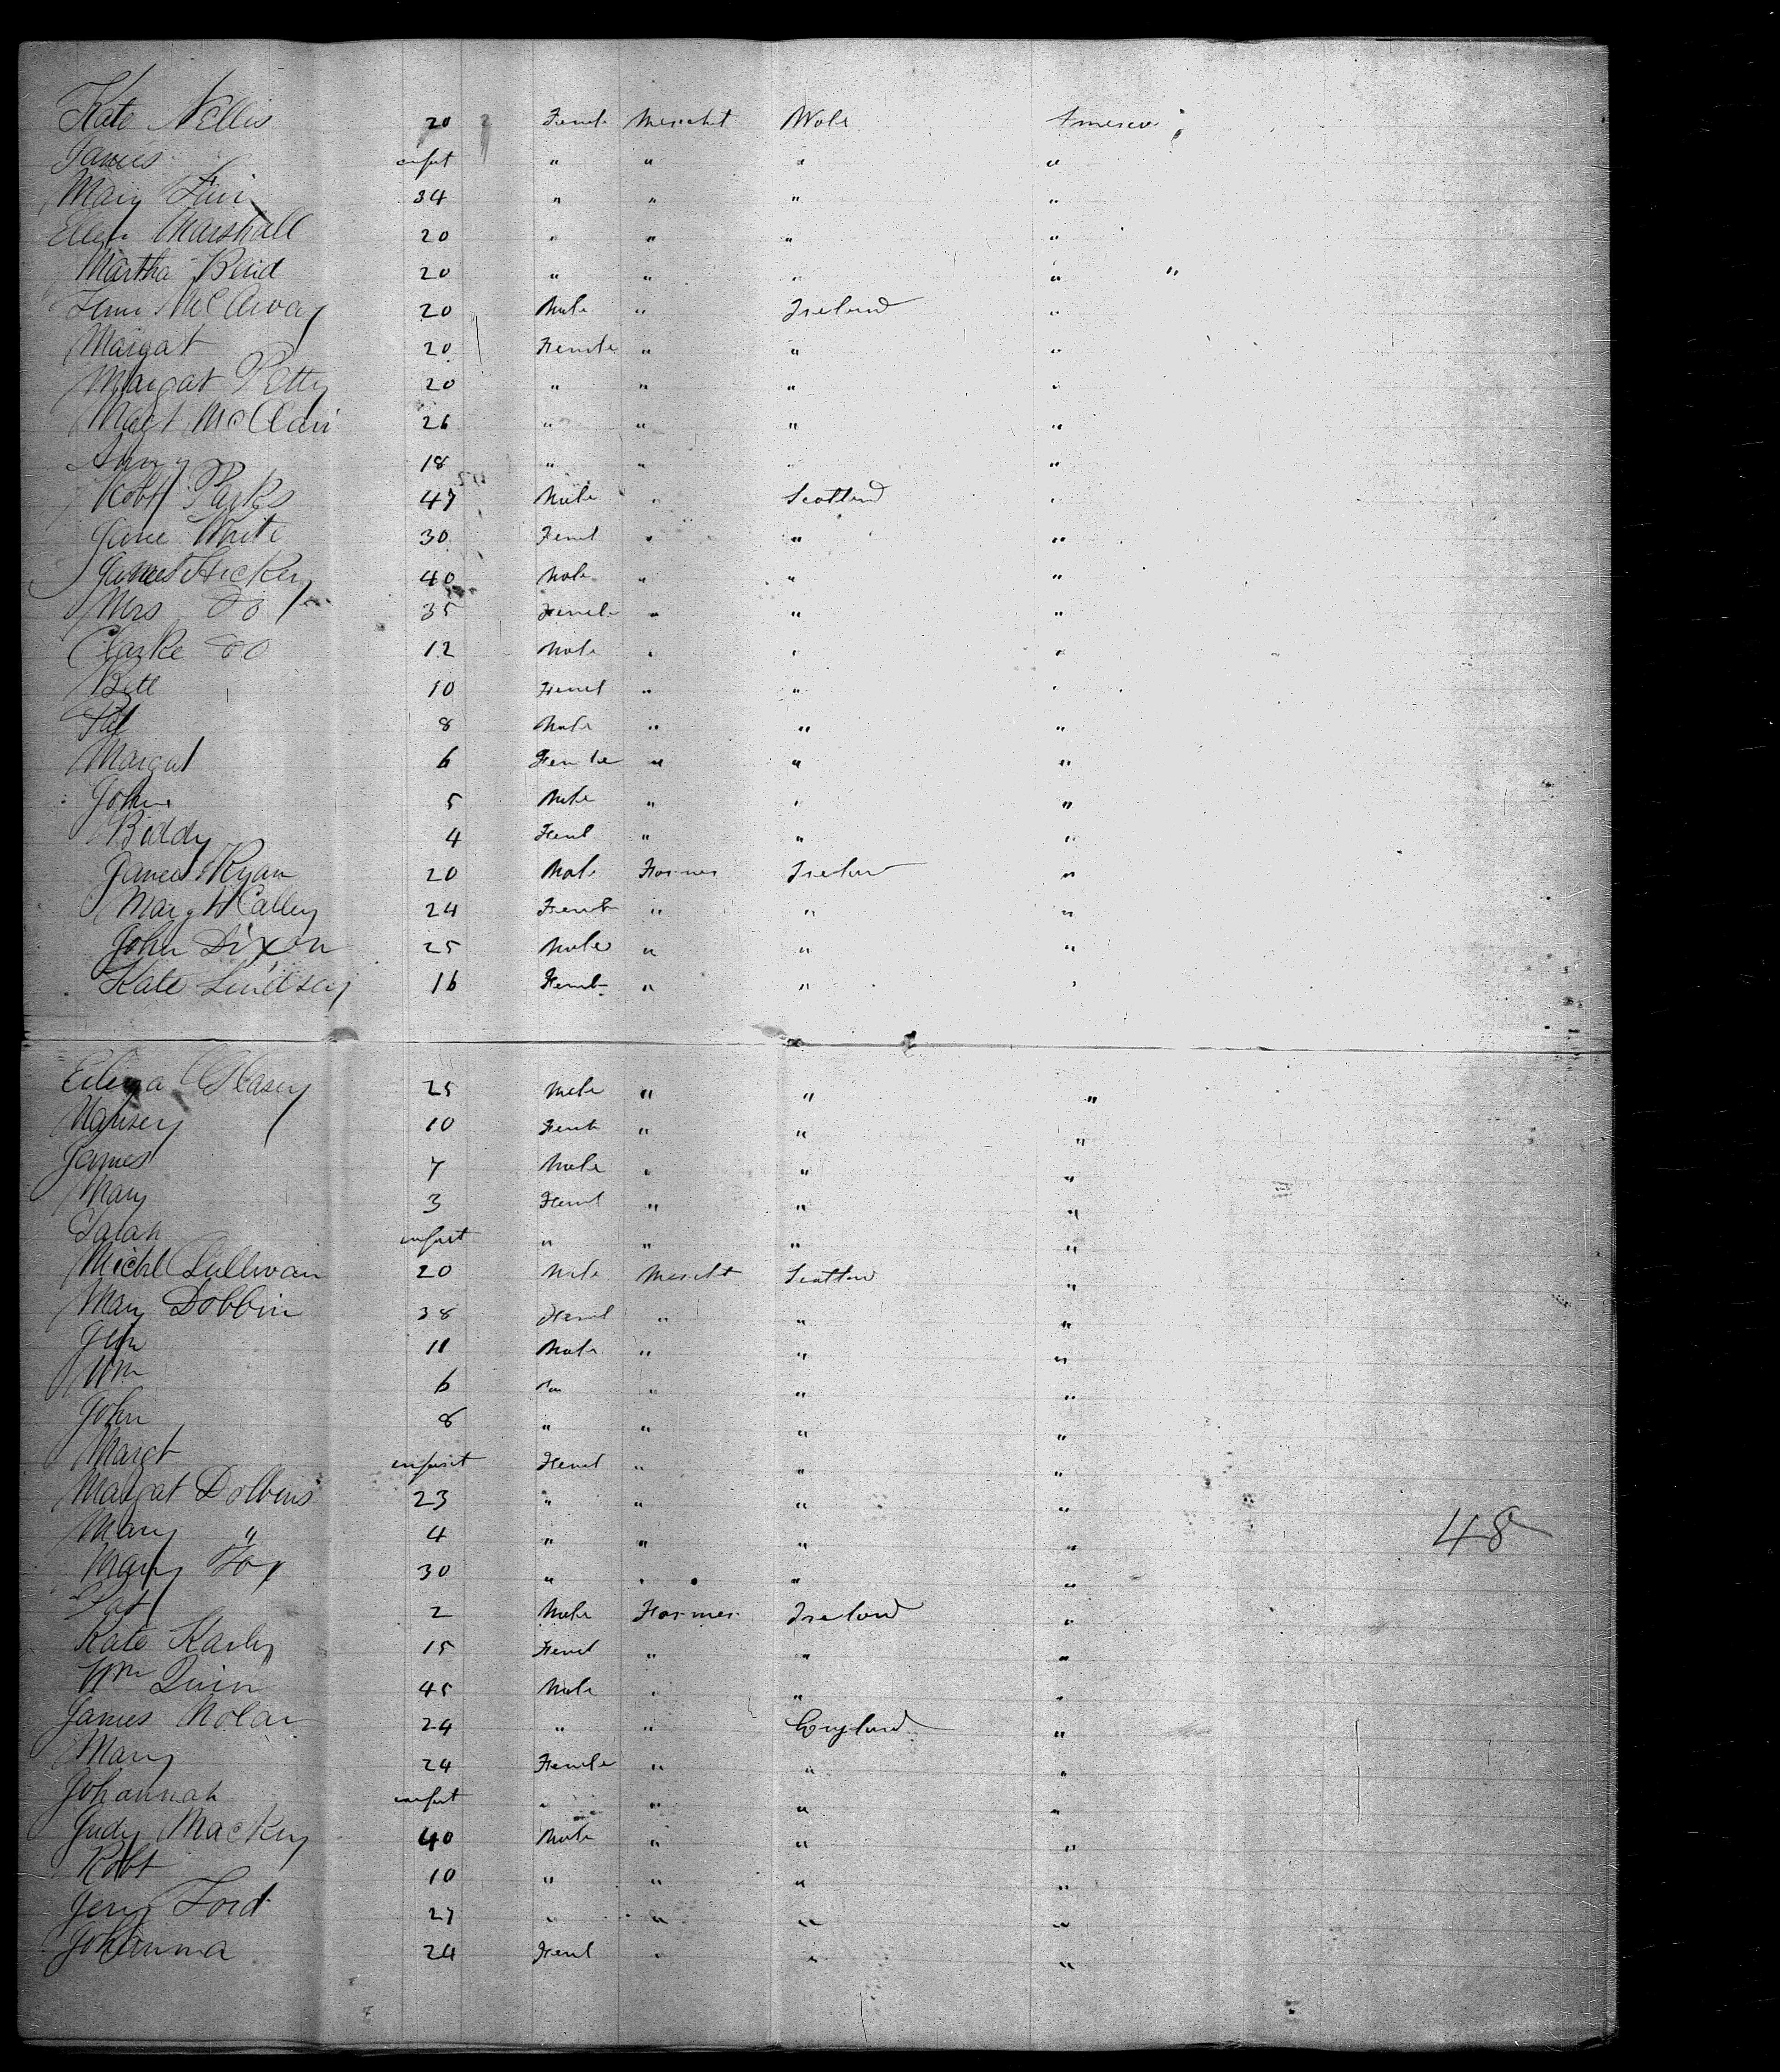 Kate Nellis 20 Femele Merchet Wale America
James infut " " " "
Mary 34 " " " "
Ellen Marshall 20 " " " "
Martha Baid 20 " " " " "
20 Male " Ireland "
Margat 20 Female " " "
Margat Petty 20 " " " "
Magt McClain 26 " " " "
18 " " " "
Robt Parks 47 Male " Scotland "
Jane White 30 Feml " " "
James Hickey 40 Male " " "
Mrs Do 35 Femele " " "
Clarke Do 12 Male " " "
Bell 10 Femel " " "
Pat 8 Male " " "
Margat 6 Female " " "
John 5 Male " " "
Biddy 4 Feml " " "
James Ryan 20 Male Farmer Irelan "
Mary 24 Female " " "
John Dixon 25 Male " " "
Kate Lindsey 16 Female " " "
25 Male " " "
10 Femle " " "
James 7 Male " " "
Mary 3 Feml " " "
Sarah infant " " " "
Michl Sullivan 20 Male Mercht Scotlan "
Mary Dobbin 38 Femel " " "
Jim 11 Male " " "
Wm 6 " " "
John 8 " " " "
Margt infant Femel " " "
Margat Dolbens 23 " " " "
Mary " 4 " " " " 48
Mary Foy 30 " " " "
Pat 2 Male Farmer Ireland "
Kate Karly 15 Femel " " "
Wm Quinn 45 Male " " "
James Nolan 24 " " England "
Mary 24 Female " " "
Johannah infant " " " "
Judy Mackey 40 Male " " "
Robt 10 " " " "
Jery Ford 27 " " " "
Johanna 24 Feml " " "